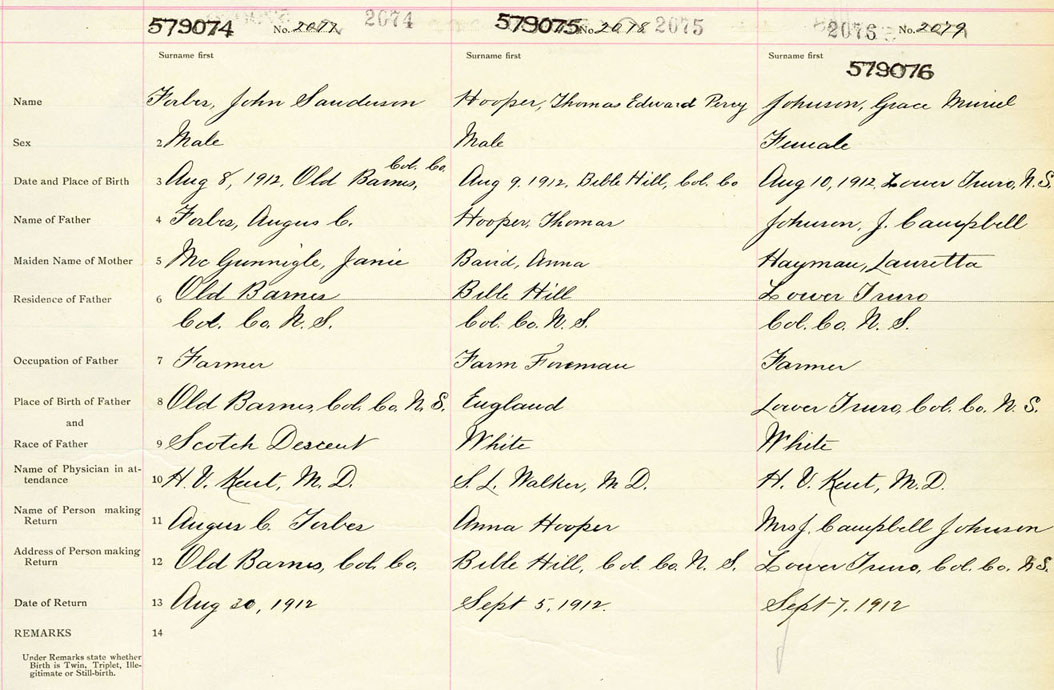 579074 No. 2077 2074 579075 No. 2078 2075 2076 No. 2079
Surname first Surname first Surname first
579076
Name Forbes, John Sanderson Hooper, Thomas Edward Percy Johnson, Grace Muriel
Sex 2 Male Male Female
Col. Co.
Date and Place of Birth 3 Aug 8, 1912, Old Barns, Aug 9, 1912, Bible Hill, Col. Co Aug 10, 1912, Lower Truro, N.S.
Name of Father 4 Forbes, Angus C. Hooper, Thomas Johnson, J. Campbell
Maiden Name of Mother 5 Mc Gunnigle, Janie Baird, Anna Hayman, Lauretta
Residence of Father 6 Old Barns Bible Hill Lower Truro
Col. Co. N. S. Col. Co. N. S. Col. Co. N. S.
Occupation of Father 7 Farmer Farm Foreman Farmer
Place of Birth of Father 8 Old Barns, Col. Co. N. S. England Lower Truro, Col. Co. N. S.
and
Race of Father 9 Scotch Descent White White
Name of Physician in at-
tendance 10 H. V. Kent, M. D. S. L. Walker, M. D. H. V. Kent, M. D.
Name of Person making
Return 11 Angus C. Forbes Anna Hooper Mrs J. Campbell Johnson
Address of Person making
Return 12 Old Barns, Col. Co. Bible Hill, Col. Co. N. S. Lower Truro, Col. Co. N.S.
Date of Return 13 Aug 20, 1912 Sept 5, 1912. Sept 7, 1912
REMARKS 14
Under Remarks state whether
Birth is Twin, Triplet, Ille-
gitimate or Still-birth.